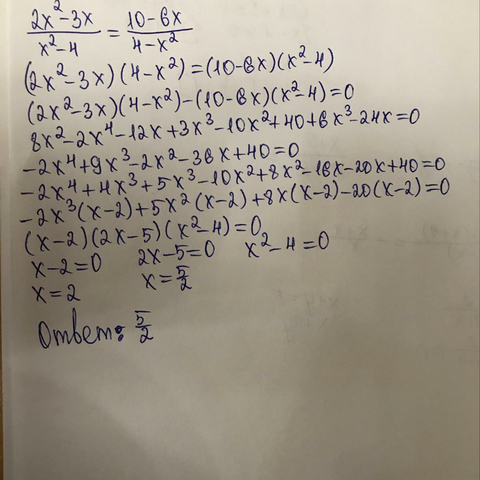 2x²-3x / x²-4 = 10-6x / 4-x²
(2x²-3x)(4-x²)=(10-6x)(x²-4)
(2x²-3x)(4-x²)-(10-6x)(x²-4)=0
8x²-2x⁴-12x+3x³-10x²+40+6x³-24x=0
-2x⁴+9x³-2x²-36x+40=0
-2x⁴+4x³+5x³-10x²+8x²-16x-20x+40=0
-2x³(x-2)+5x²(x-2)+8x(x-2)-20(x-2)=0
(x-2)(2x-5)(x²-4)=0
x-2=0 2x-5=0 x²-4=0
x=2 x=5/2
Ответ: 5/2